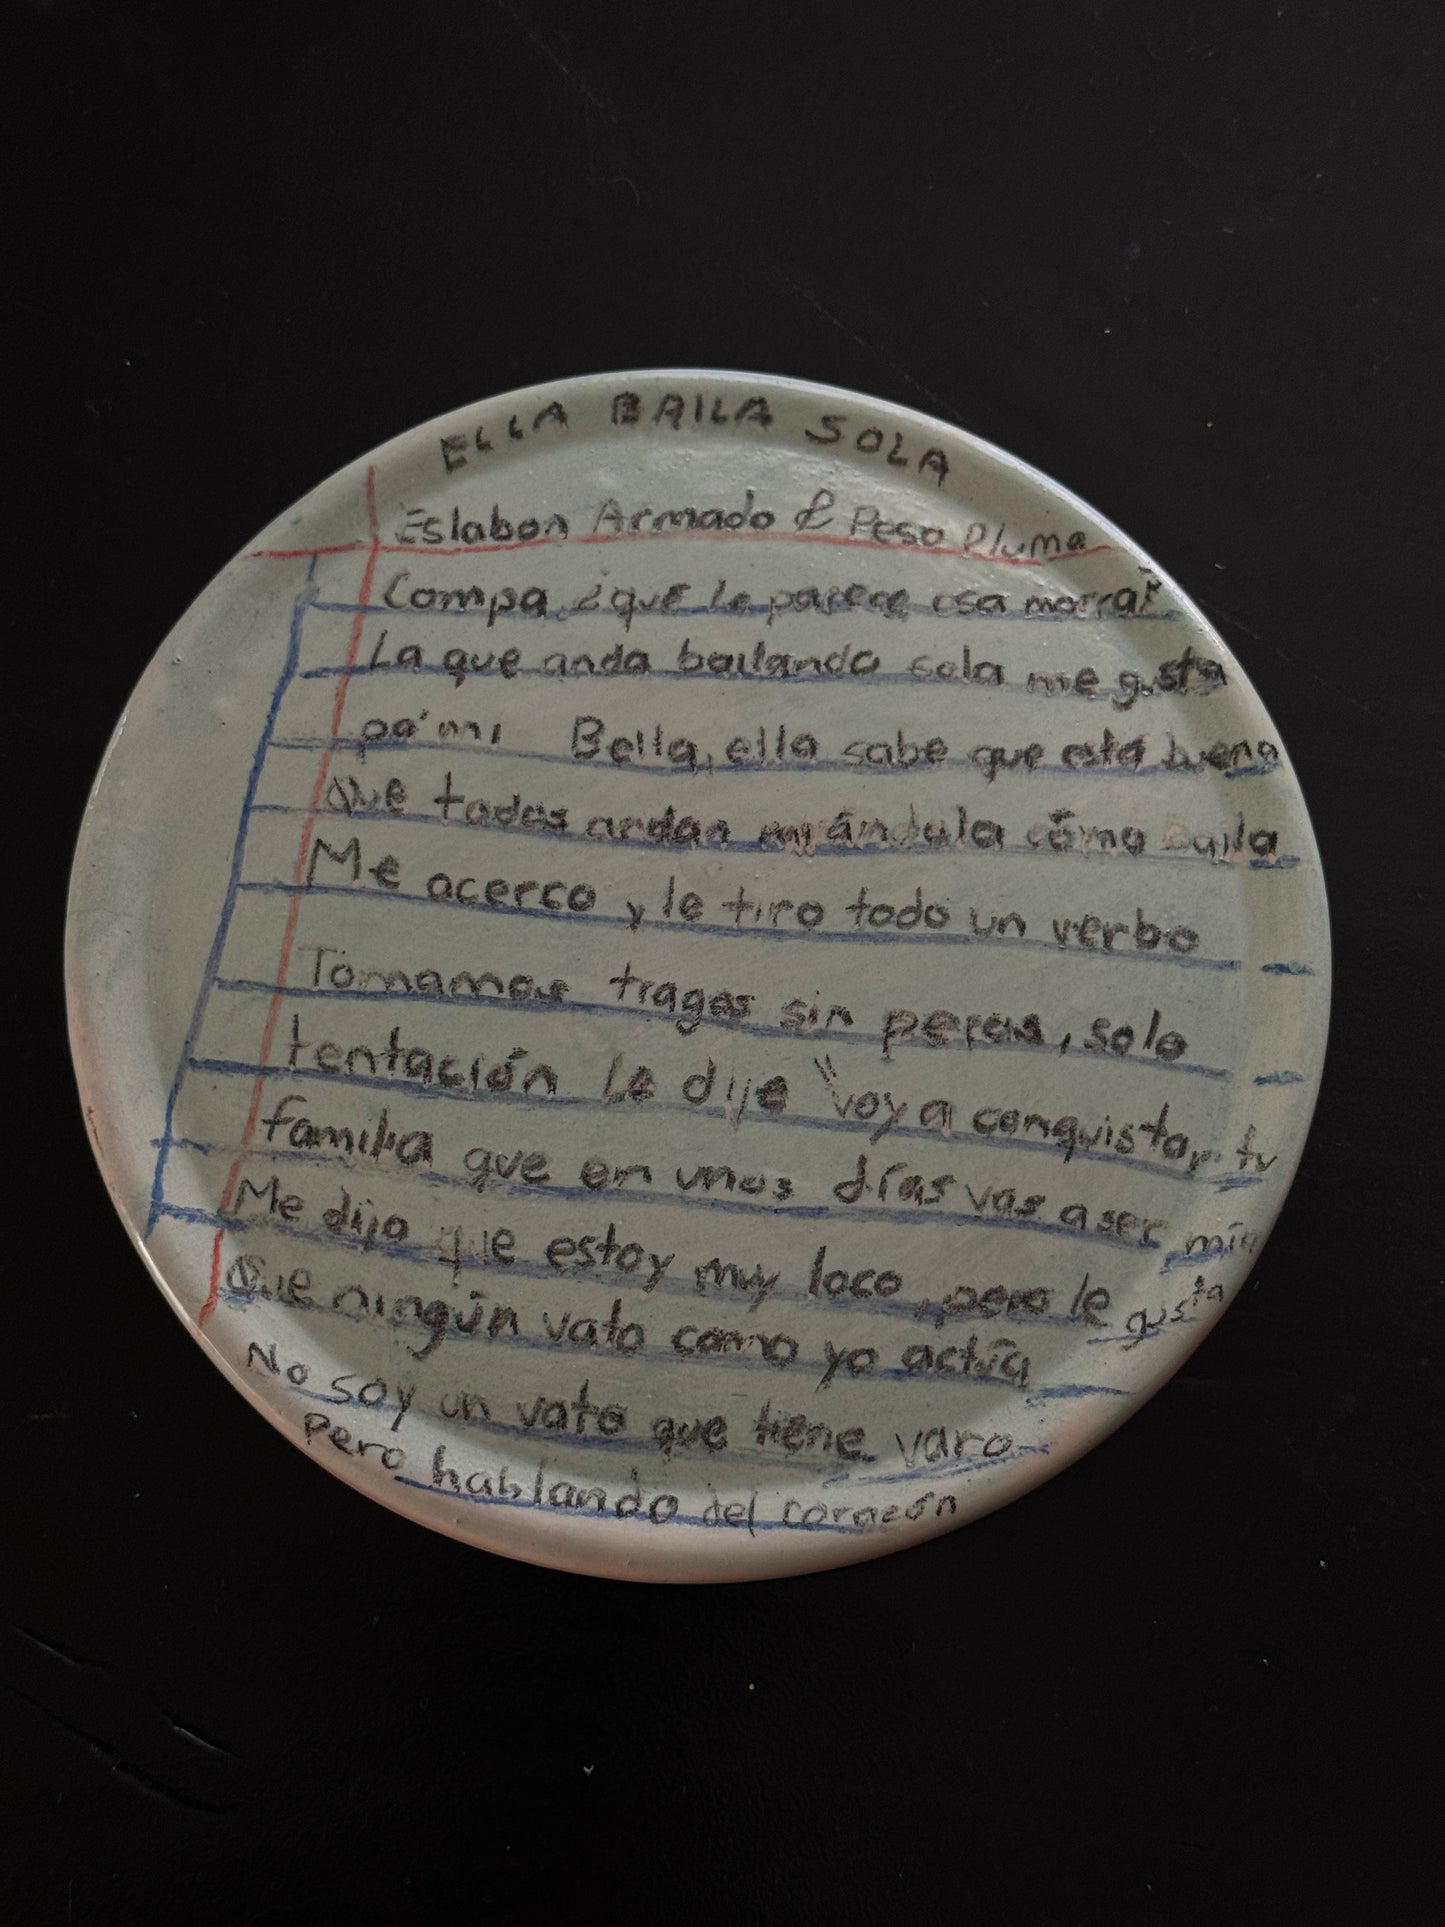 ELLA BAILA SOLA
Eslabon Armado & Peso Pluma
Compa ¿que le parece esa morra?
La que anda bailando sola me gusta
pa' mi Bella, ella sabe que está buena
Que todos andan mirándola cómo baila
Me acerco y le tiro todo un verbo
Tomamos tragos sin peros, solo
tentación Le dije "voy a conquistar tu
familia que en unos días vas a ser mía
Me dijo que estoy muy loco, pero le gusta
Que ningún vato como yo actúa
No soy un vato que tiene varo
Pero hablando del corazón